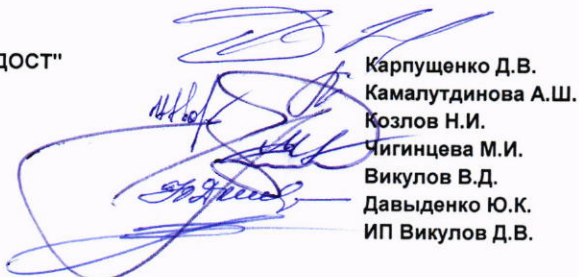 ДОСТ"
Карпущенко Д.В.
Камалутдинова А.Ш.
Козлов Н.И.
Чигинцева М.И.
Викулов В.Д.
Давыденко Ю.К.
ИП Викулов Д.В.